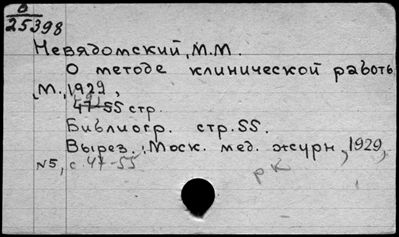 В
25398
Невядомский, М.М.
О методе клинической работы
М., 1929,
47-55 стр.
Библиогр. стр. 55.
Вырез.: Моск. мед. журн, 1929,
N5, с. 47-55
рк